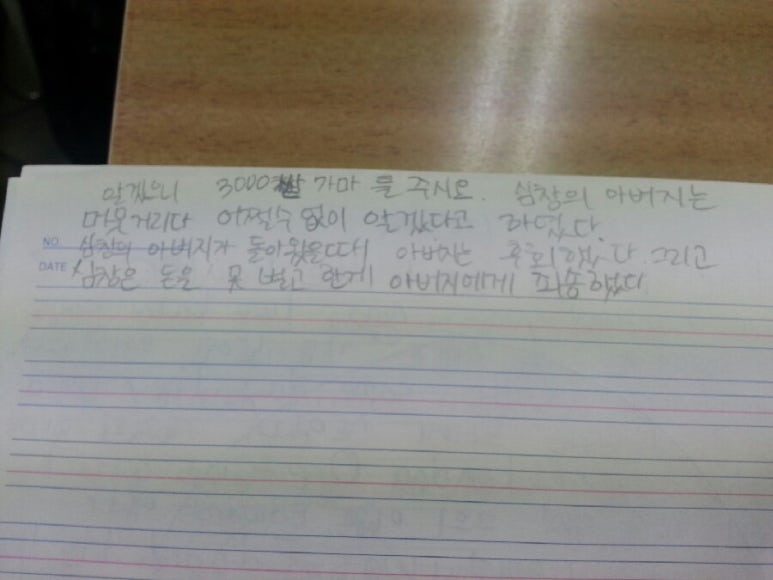 알겠으니 3000쌀 가마 를 주시오. 심창의 아버지는
머뭇거리다 어쩔수 없이 알겠다고 하였다.
NO. 심창의 아버지가 돌아왔을때 아버지는 후회했다. 그리고
DATE 심창은 돈을 못 벌고 한게 아버지에게 죄송했다.